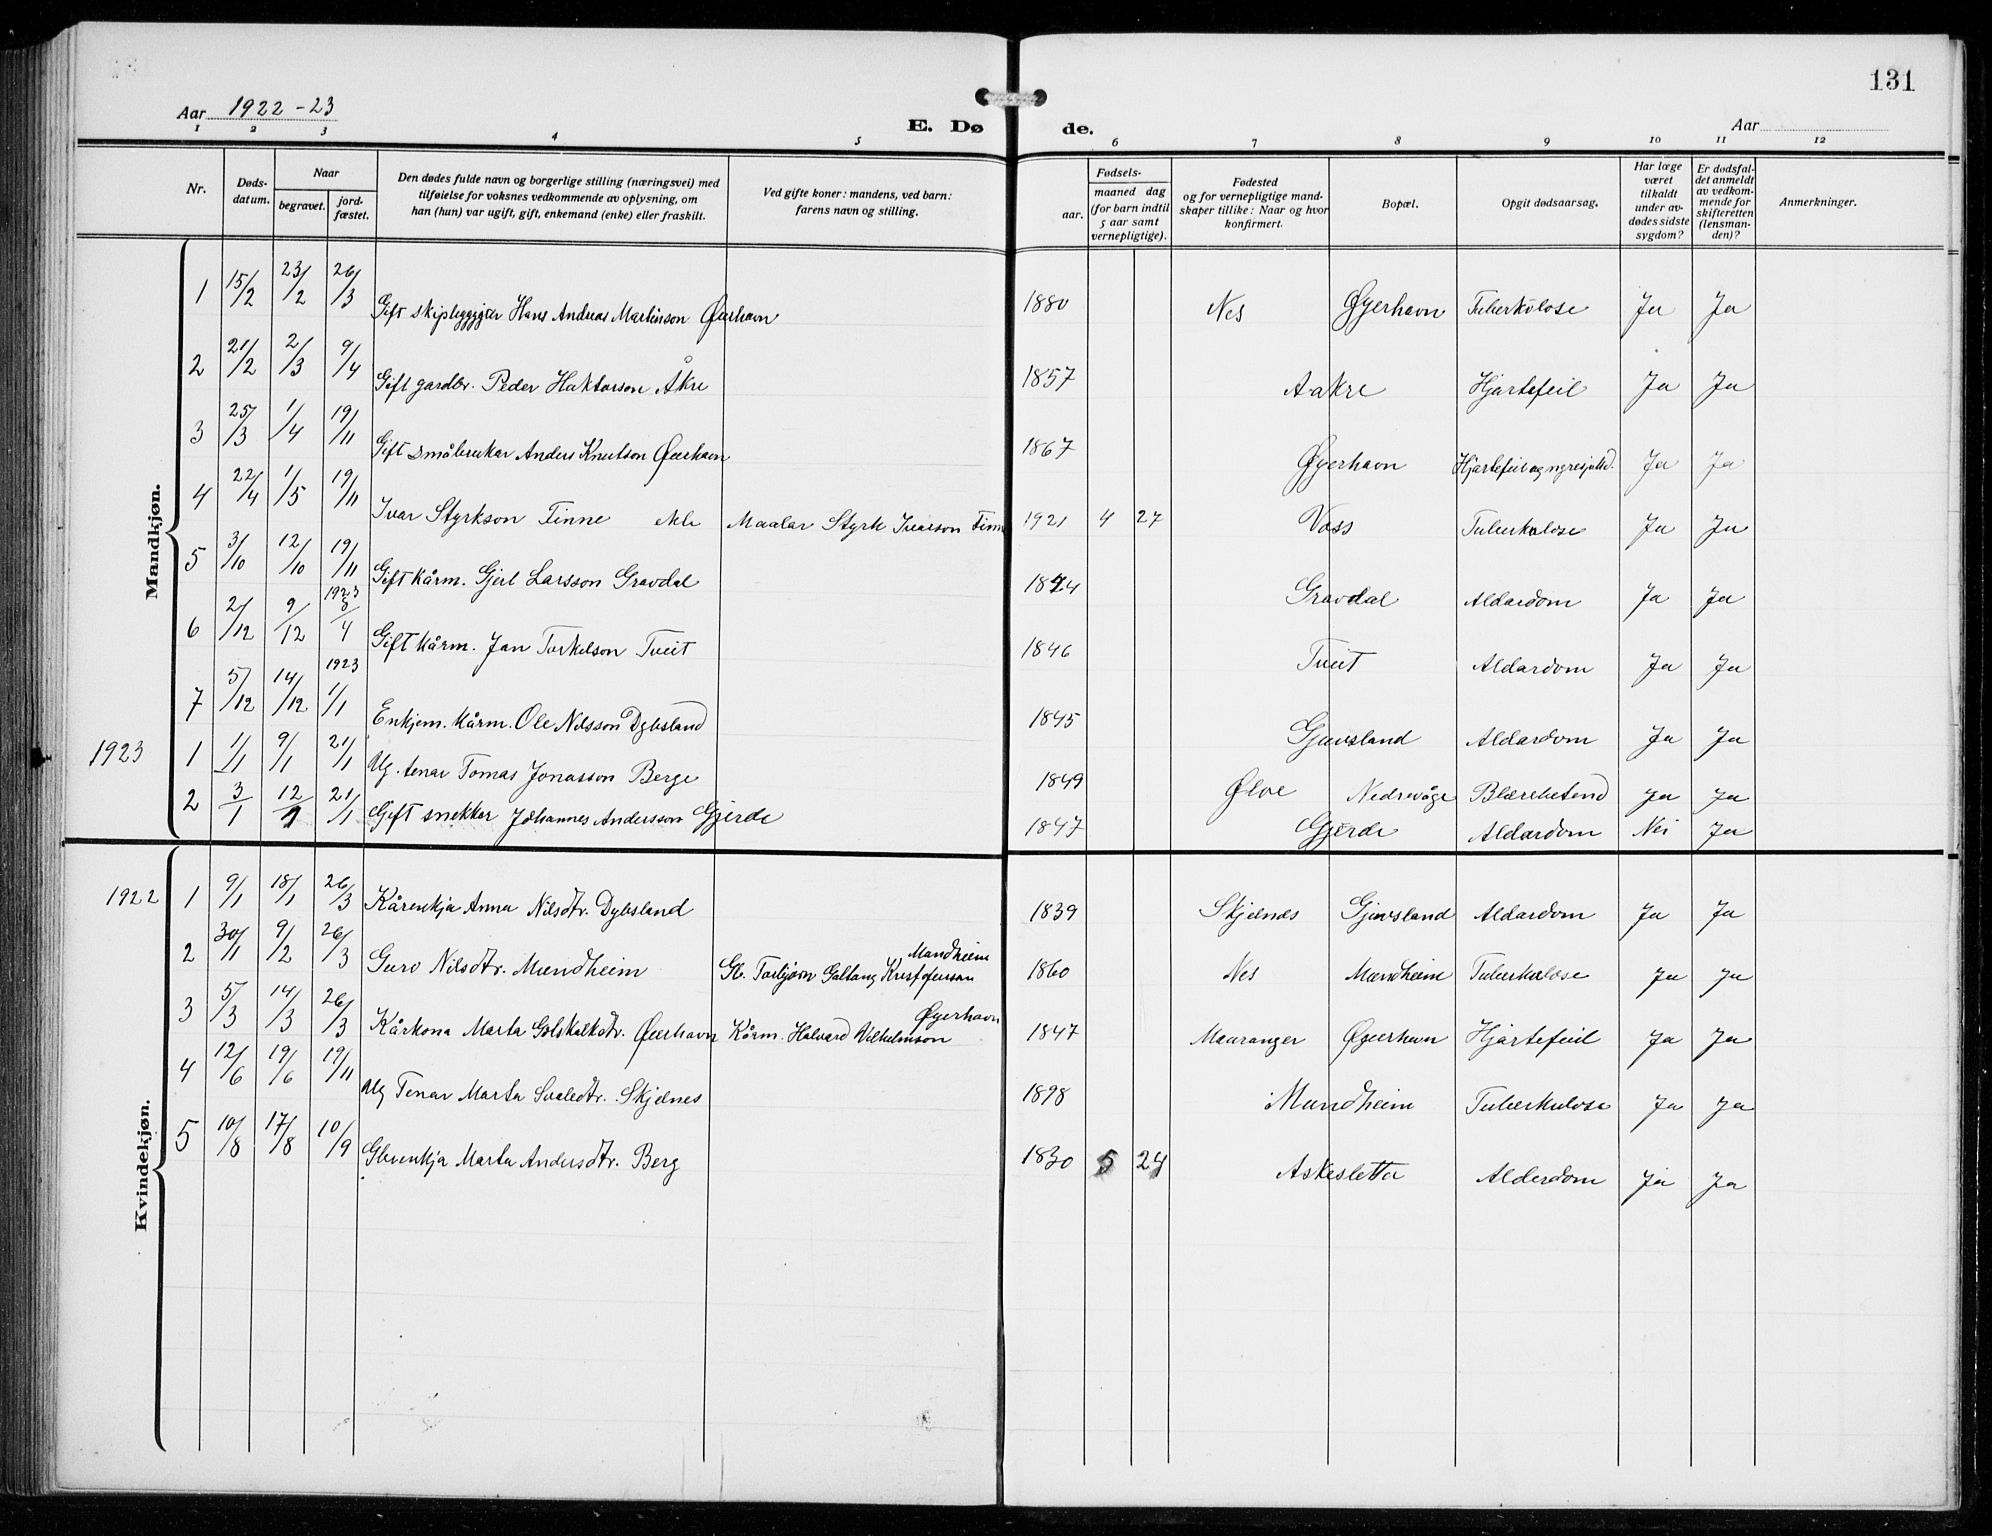 131
Aar 1922-23
E. Døde.
Aar
1 2 3 4 5 6 7 8 9 10 11 12
Nr.
Døds-datum.
Naar
begravet.
jord-fæstet.
Den dødes fulde navn og borgerlige stilling (næringsvei) med
tilføielse for voksnes vedkommende av oplysning, om
han (hun) var ugift, gift, enkemand (enke) eller fraskilt.
Ved gifte koner: mandens, ved barn:
farens navn og stilling.
Fødsels-
aar.
maaned dag
(for barn indtil
5 aar samt
vernepligtige).
Fødested
og for vernepligtige mand-
skaper tillike: Naar og hvor
konfirmert.
Bopæl.
Opgit dødsaarsag.
Har læge
været
tilkaldt
under av-
dødes sidste
sygdom?
Er dødsfal-
det anmeldt
av vedkom-
mende for
skifteretten
(lensman-
den)?
Anmerkninger.
Mandkjøn.
1 15/2 23/2 26/3 Gift skipsbyggjar Hans Andreas Martinson Øierhavn 1880 Nes Øyerhavn Tuberkulose Ja Ja
2 21/2 2/3 9/4 Gift gardbr. Peder Haktorson Åkre 1857 Aakre Hjartefeil Ja Ja
3 25/3 1/4 19/11 Gift småbrukar Anders Knutson Øierhavn 1867 Øyerhavn Hjartefeil og Ja Ja
4 22/4 1/5 19/11 Ivar Styrkson Finne Maalar Styrk Ivarson Finne 1921 4 27 Voss Tuberkulose Ja Ja
5 3/10 12/10 19/11 Gift Kårm. Gjert Larsson Gravdal Gravdal Aldardom Ja Ja
6 2/12 9/12 1923 8/4 Gift Kårm. Jan Torkelson Tveit 1846 Tveit Aldardom Ja Ja
7 5/12 14/12 1923 1/1 Enkjem. Kårm. Ole Nilsson Dybsland 1845 Gjuvsland Aldardom Ja Ja
1923 1 1/1 9/1 21/1 Ug. tenar Tomas Jonasson Berge 1849 Ølve Nedrevåge Blærebetend Ja Ja
2 3/1 12/1 21/1 Gift snekkar Johannes Andersson Gjerde 1847 Gjerde Aldardom Nei Ja
Kvindekjøn.
1922 1 9/1 18/1 26/3 Kårenkja Anna Nilsdtr. Dybsland 1839 Skjelnes Gjuvsland Aldardom Ja Ja
2 30/1 9/2 26/3 Guro Nilsdtr. Mundheim Gb. Torbjørn Galtung Kristoferson Mundheim 1860 Nes Mundheim Tuberkulose Ja Ja
3 5/3 14/3 26/3 Kårkona Marta Gotskalksdtr. Øierhavn Kårm. Halvard Vilhelmson Øyerhavn 1847 Mauranger Øyerhavn Hjartefeil Ja Ja
4 12/6 19/6 19/11 Ug Tenar Marta Svaledtr. Skjelnes 1898 Mundheim Tuberkulose Ja Ja
5 10/8 17/8 10/9 Marta Andersdtr. Berg 1830 5 24 Askesletta Alderdom Ja Ja